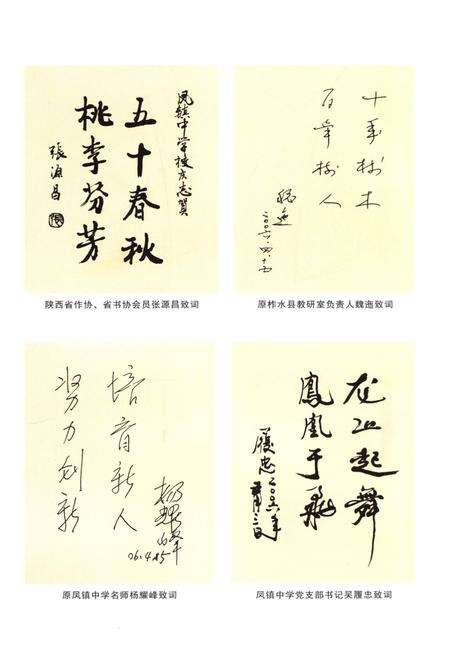 凤镇中学校庆志贺
五十春秋
桃李芬芳
張源昌
陕西省作协、省书协会员张源昌致词
十年树木
百年树人
二〇〇六·四·十五
原柞水县教研室负责人魏迤致词
培育新人
努力创新
杨耀峰
06.4.15
原凤镇中学名师杨耀峰致词
起舞
鳳凰于飛
履忠二〇〇六年
凤镇中学党支部书记吴履忠致词